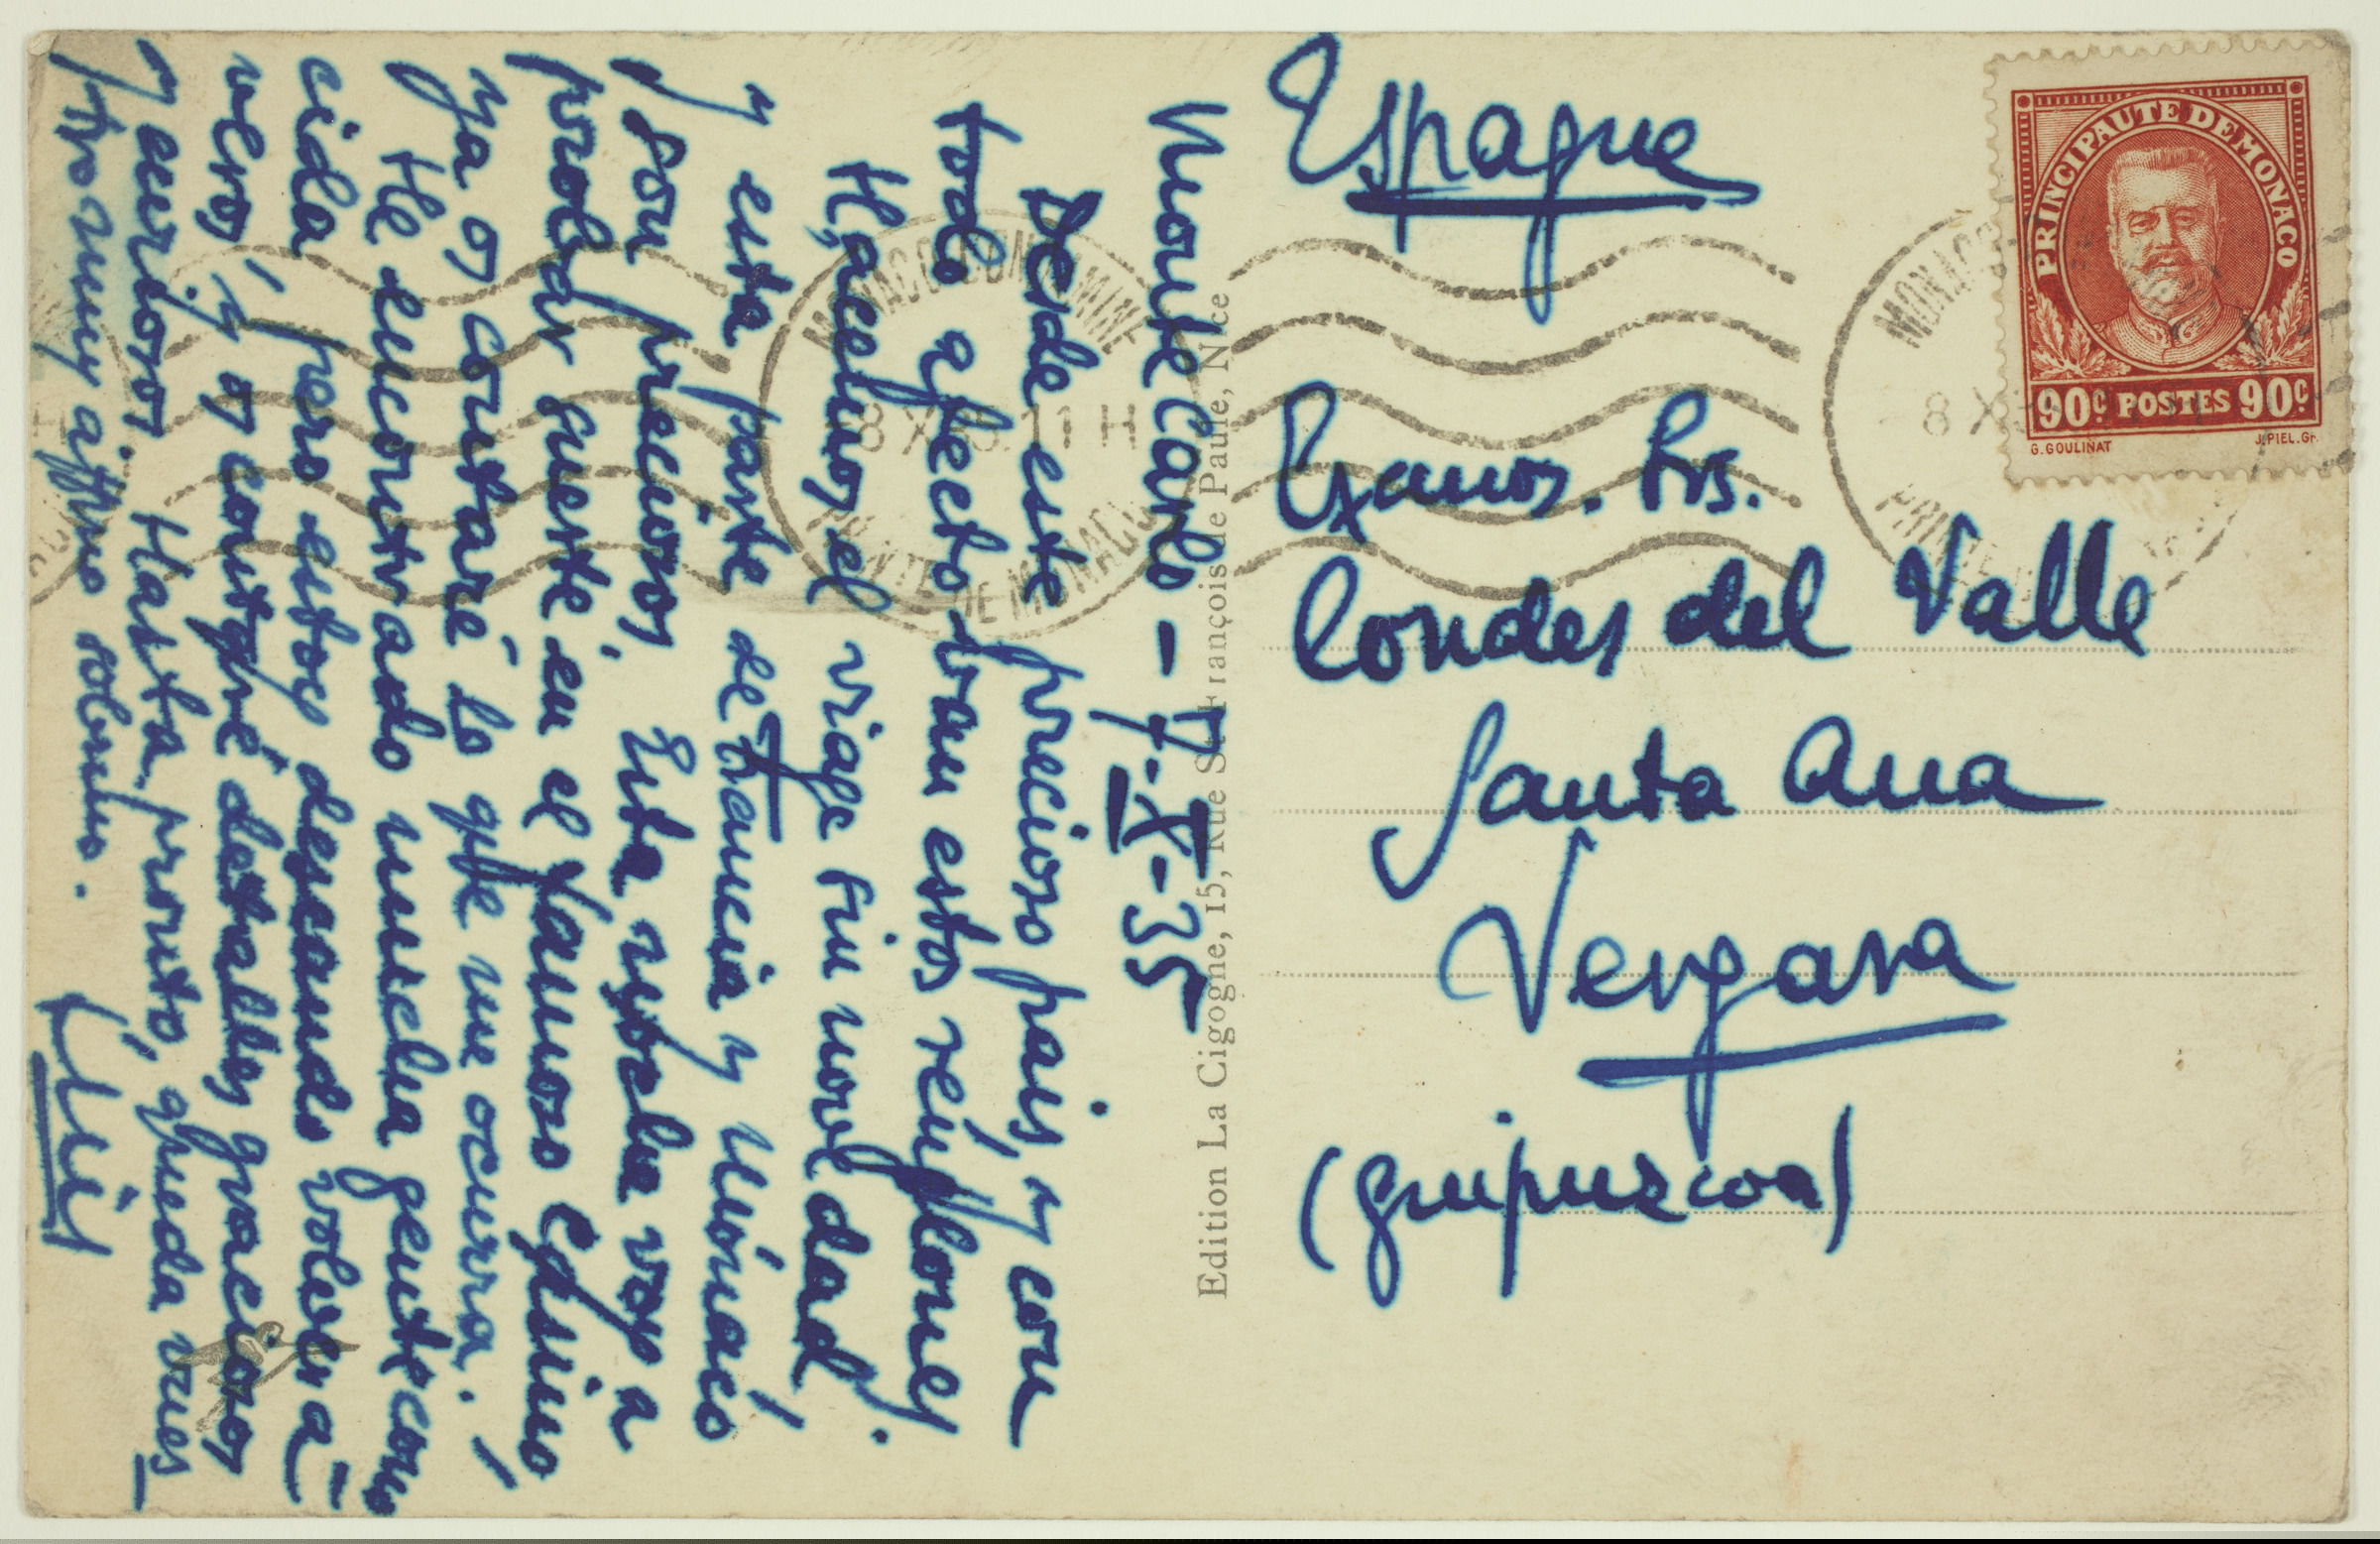 Monte Carlo - 7-X-35
Desde este precioso pais, y con
todo afecto van estos renglones.
Hacemos el viage sin novedad
y esta parte de Francia y Mónaco
son preciosos. Esta noche voy a
probar suerte en el famoso Cassino
ya os contaré lo que me ocurra.
He encontrado mucha gente cono
cida pero estoy deseando volver a
veros y os contaré detalles graciosos
y curiosos. Hasta pronto, queda vues
tro muy affmo sobrino.
Luis
Edition La Cigogne, 15, Rue St-François de Paule, Nice
Espagne
Exmos. Srs.
Condes del Valle
Santa Ana
Vergara
(Guipuzcoa)
PRINCIPAUTE DE MONACO
90c POSTES 90c
G. GOULINAT J. PIEL. Gr.
MONACO-CONDAMINE
8 X 11 H
PRINTE DE MONACO
MONACO
8 X